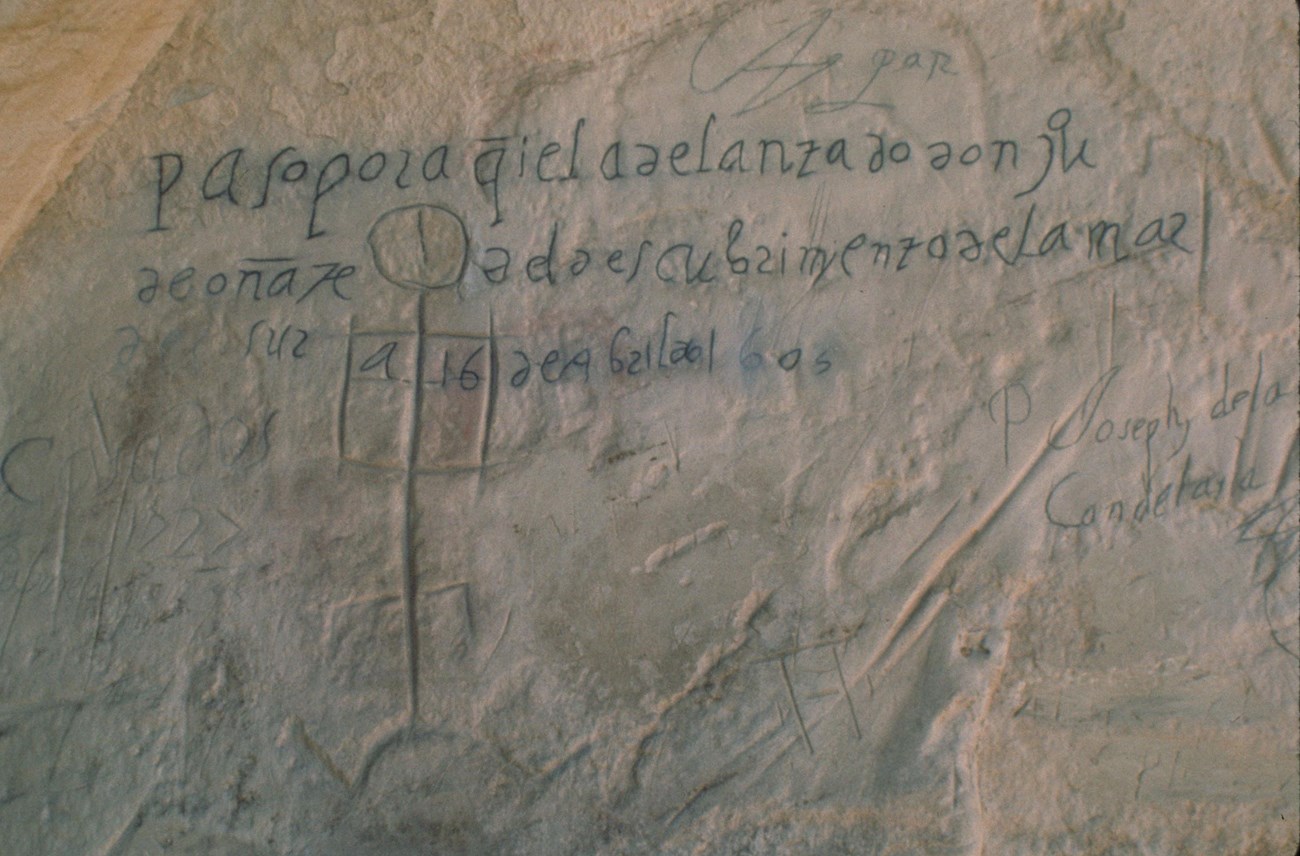 paso por a q̄i el adelantado don ju°
de oñate del descubrimento de la mar
del sur a 16 de Abril del 605
P Joseph de la
Candelaria